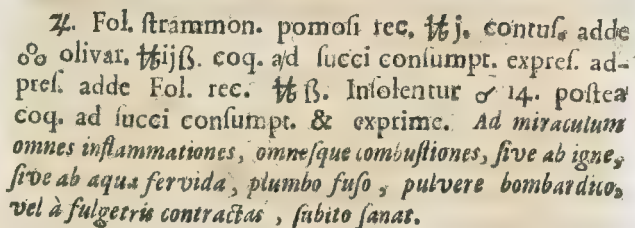 ♃. Fol. ſtrammon. pomoſi rec. ℔j. contuſ. adde
oͦo olivar. ℔ijß. coq. ad ſucci conſumpt. expreſ. ad-
preſ. adde Fol. rec. ℔ ß. Inſolentur ♂ 14. poſtea
coq. ad ſucci conſumpt. & exprime. Ad miraculum
omnes inflammationes, omneſque combuſtiones, ſive ab igne,
ſive ab aqua fervida, plumbo fuſo, pulvere bombardico,
vel à fulgetris contractas, ſubito ſanat.